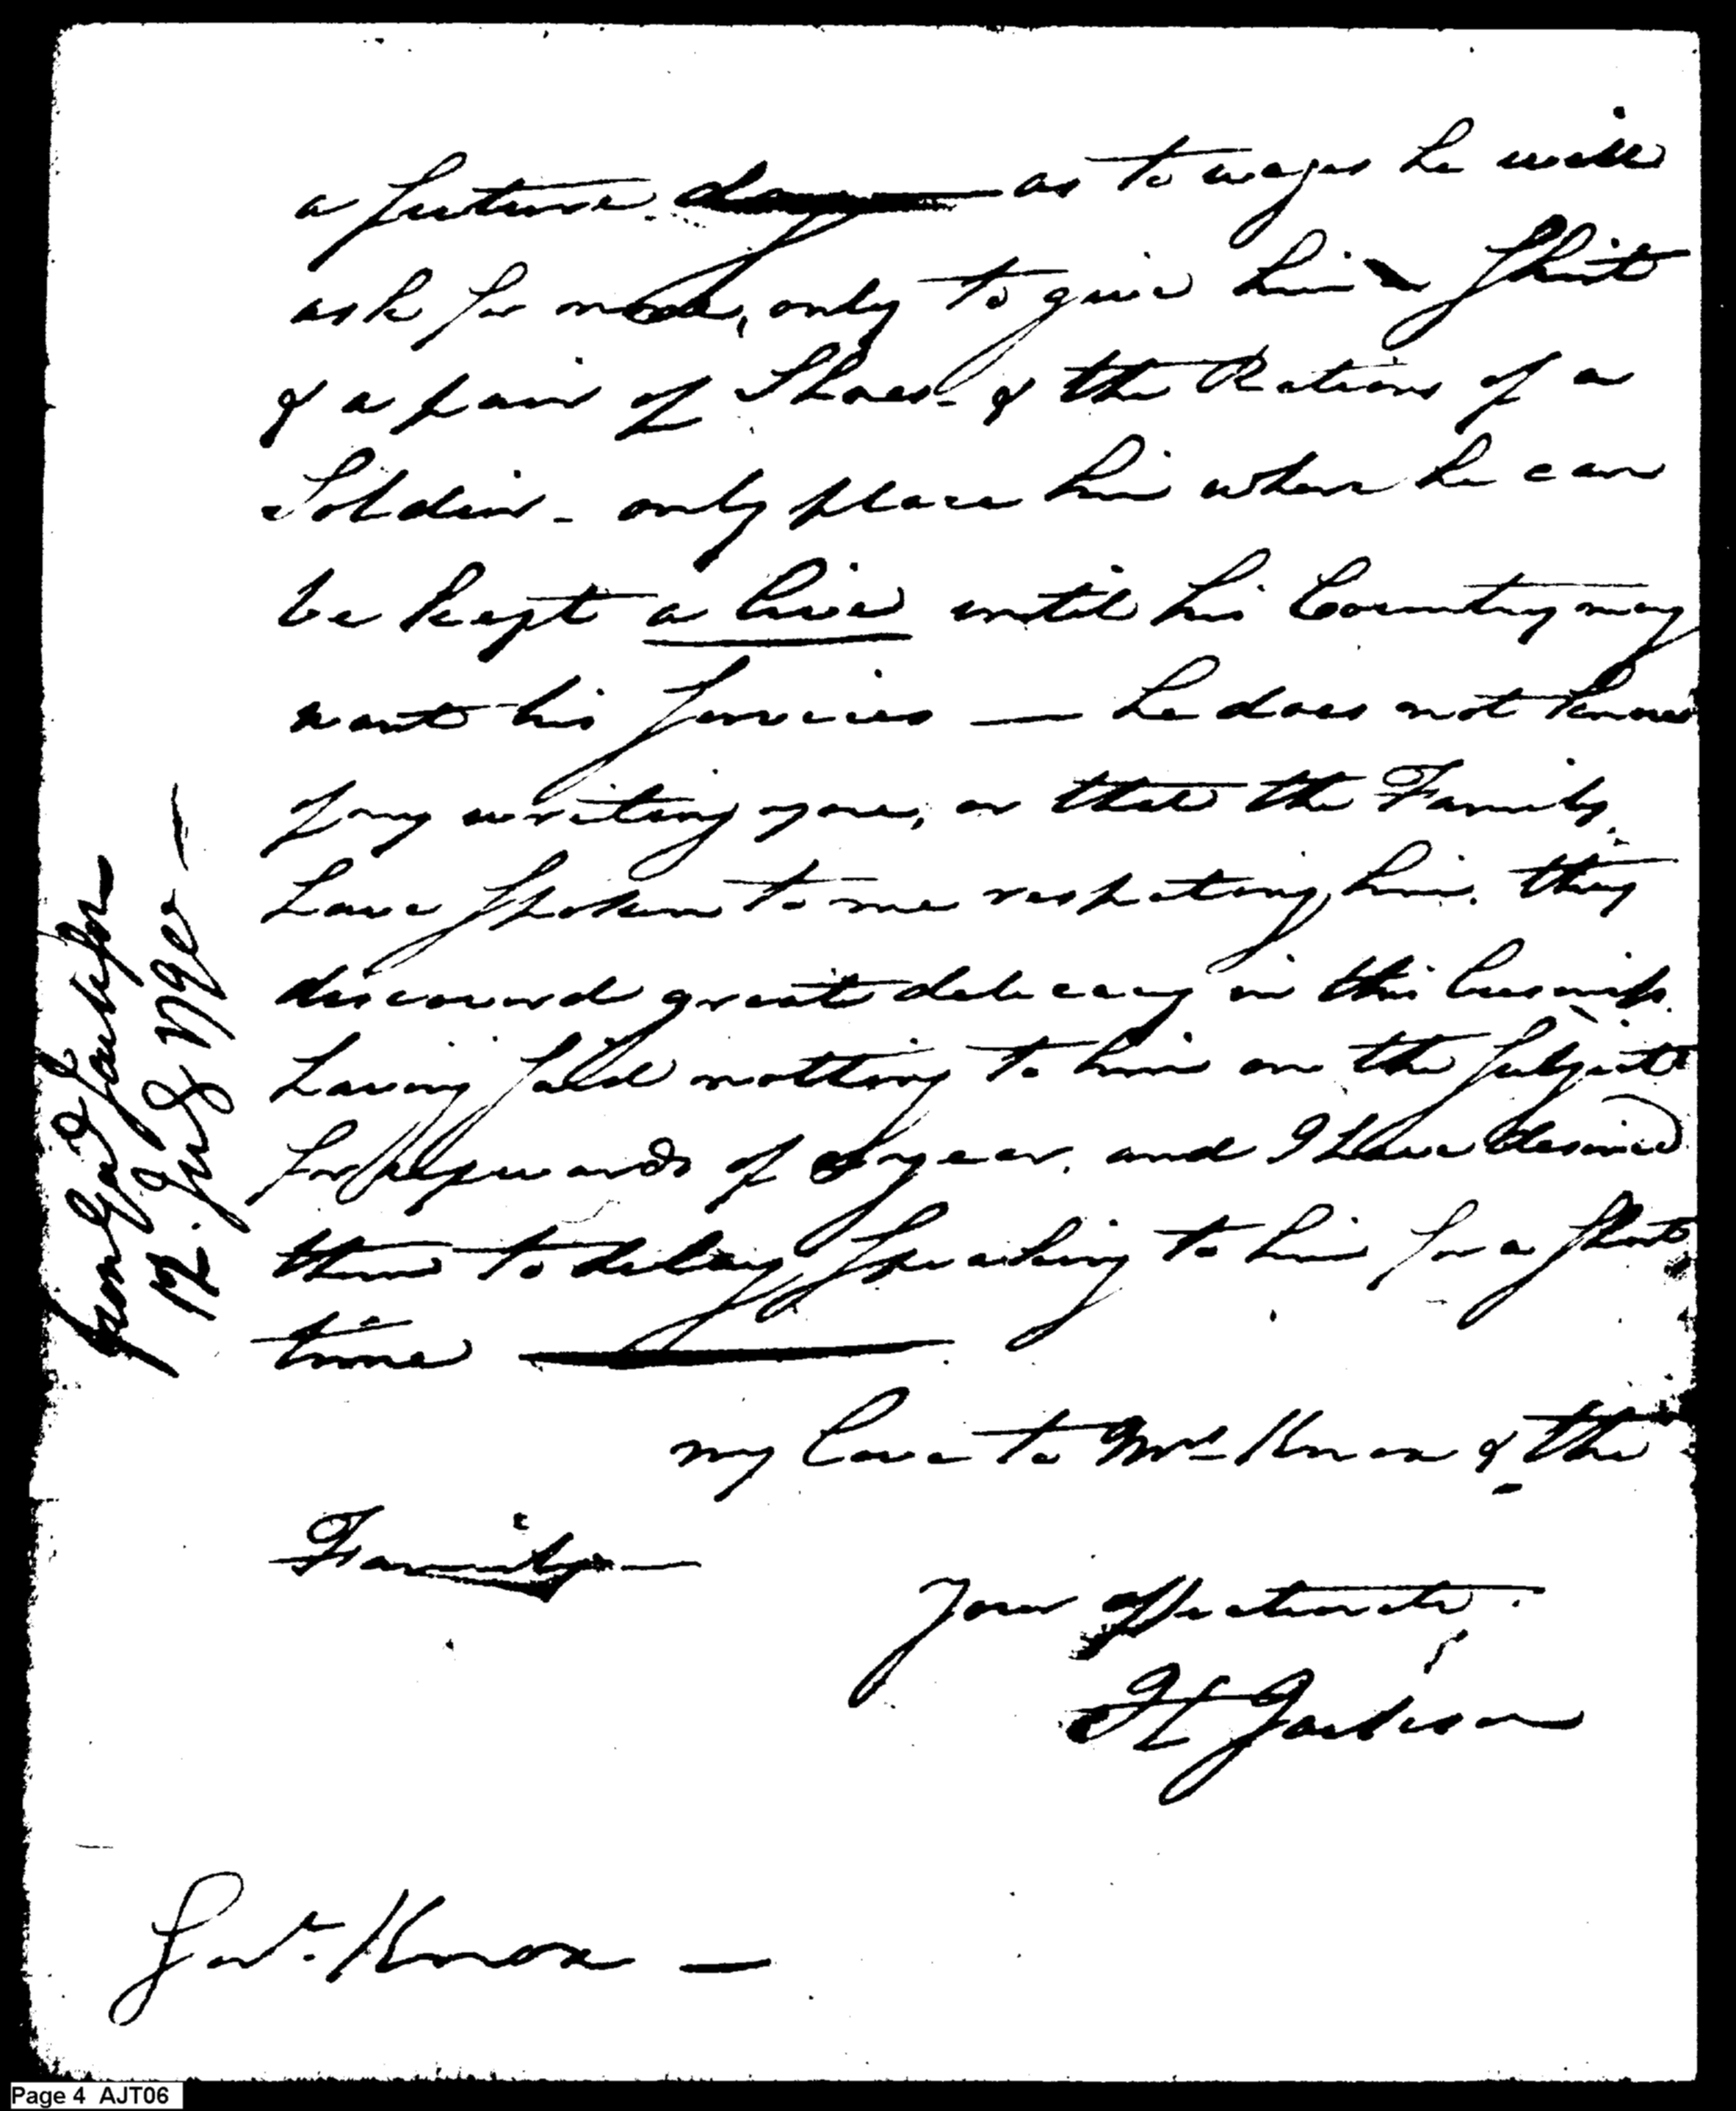 a future day — as to wages he will
ask for none, only to give him a Shirt
& a pair of Shoes - & the Rations of a
Soldier - only place him where he can
be kept a live until his Country may
want his Services — he does not know
of my writing you, or that the Family
have Spoken to me respecting him. they
discovered great delicacy in this business.
having said nothing to him on the Subject
for upwards of a year. and I have desired
them to delay Speaking to him for a Short
time —
my love to Mrs Knox & the
Family —
Your Affectionate.
H Jackson
Genl. Knox —
from Genl Jackson
12. July 179
Page 4 AJT06